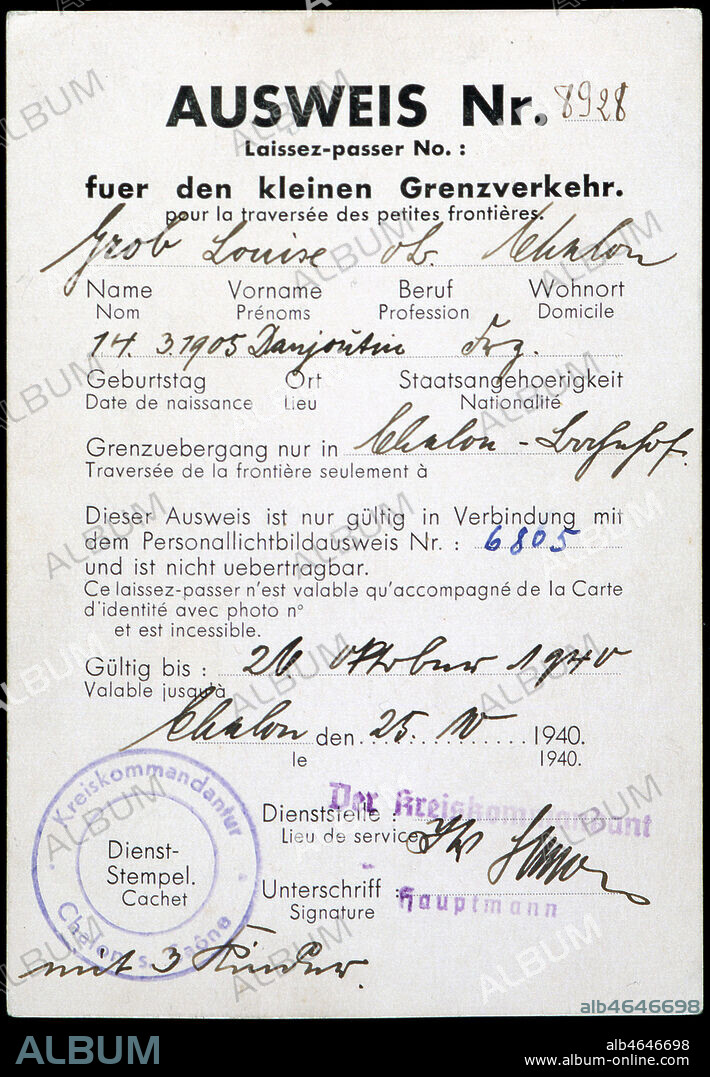 AUSWEIS Nr. 8928
Laissez-passer No. :
fuer den kleinen Grenzverkehr.
pour la traversée des petites frontières.
Grob Louise oB. Chalon
Name Vorname Beruf Wohnort
Nom Prénoms Profession Domicile
14. 3.1905 Danjoutin Frz.
Geburtstag Ort Staatsangehoerigkeit
Date de naissance Lieu Nationalité
Grenzuebergang nur in Chalon - Bahnhof.
Traversée de la frontière seulement à
Dieser Ausweis ist nur gültig in Verbindung mit
dem Personallichtbildausweis Nr. : 6805
und ist nicht uebertragbar.
Ce laissez-passer n'est valable qu'accompagné de la Carte
d'identité avec photo n°
et est incessible.
Gültig bis : 26 Oktober 1940
Valable jusqu'à
Chalon den 25. 10 1940.
le 1940.
Der Kreiskommandant
Dienststelle :
Lieu de service
Kreiskommandantur
Dienst-
Stempel.
Cachet
Chalon s. Saône
Unterschrift :
Signature
Hauptmann
mit 3 Kinder.
ALBUM
alb4646698
ALBUM
alb4646698
www.album-online.com